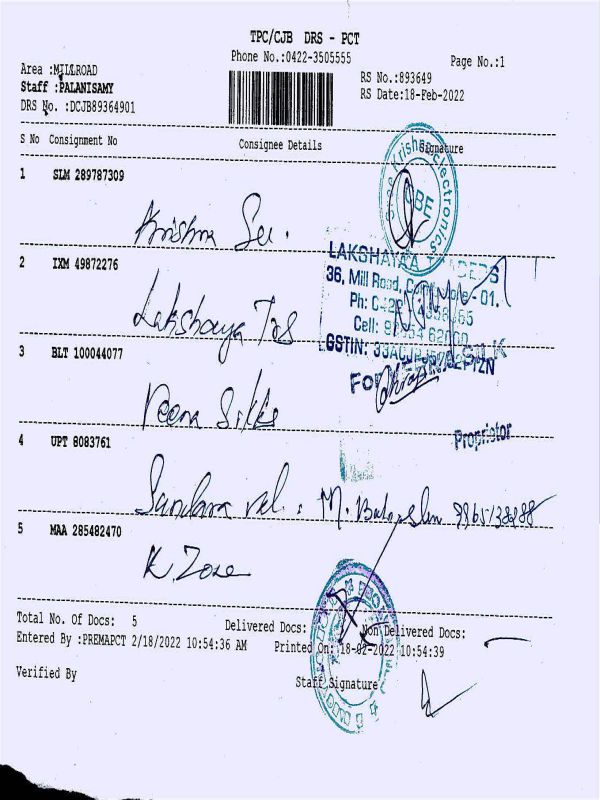 TPC/CJB DRS - PCT
Phone No.:0422-3505555
Page No.:1
Area :MILLROAD
RS No.:893649
Staff :PALANISAMY
RS Date:18-Feb-2022
DRS No. :DCJB89364901
S No Consignment No Consignee Details Signature
1 SLM 289787309
Krishna
Electronics
CBE
2 IXM 49872276
LAKSHAYAA
36, Mill Road, - 01.
Ph:
Cell:
Lakshaya Trs
GSTIN:
3 BLT 100044077
SILK
For
Veena Silks
Proprietor
4 UPT 8083761
M.
5 MAA 285482470
K. Zone
Total No. Of Docs: 5 Delivered Docs: Non Delivered Docs:
Entered By :PREMAPCT 2/18/2022 10:54:36 AM Printed On: 18-02-2022 10:54:39
Verified By Staff Signature